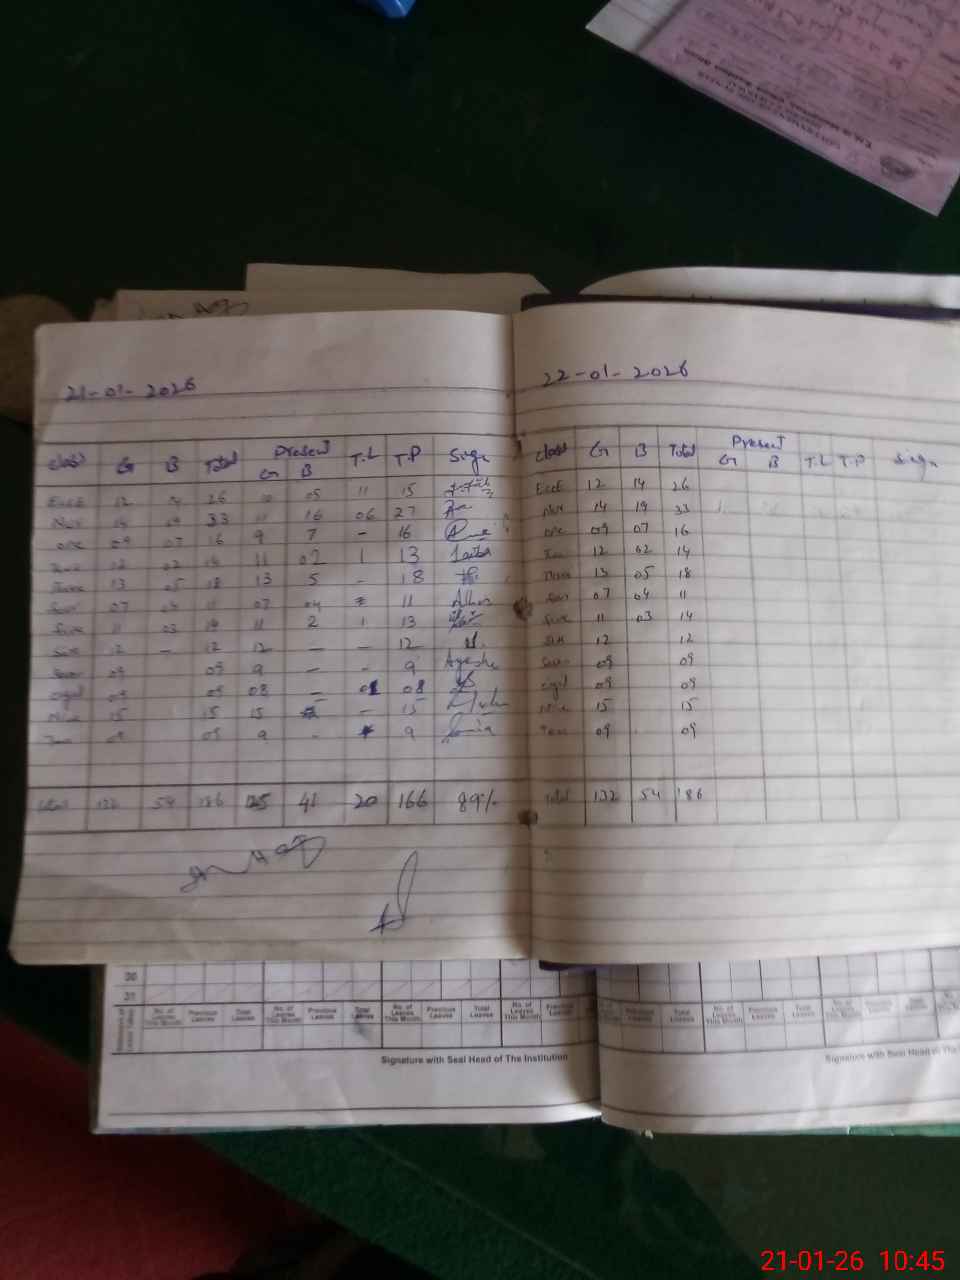 21-01-2026
Class G B Total Present T.L T.P Sign
G B
EccE 12 14 26 10 05 11 15
Nur 14 19 33 11 16 06 27
one 09 07 16 9 7 - 16
Two 12 02 14 11 02 1 13 Laiba
Three 13 05 18 13 5 - 18
four 07 04 11 07 04 11
five 11 03 14 11 2 1 13
six 12 - 12 12 - - 12
09 09 9 - - 9 Ayesha
09 09 08 - 01 08
Nine 15 15 15 - 15
Ten 09 09 9 - 9
Total 132 54 186 125 41 20 166 89%
22-01-2026
Class G B Total Present T.L T.P Sign
G B
EccE 12 14 26
Nur 14 19 33
one 09 07 16
Two 12 02 14
Three 13 05 18
four 07 04 11
five 11 03 14
six 12 12
09 09
09 09
Nine 15 15
Ten 09 09
Total 132 54 186
30
31
No. of Leaves This Month Previous Leaves Total Leaves No. of Leaves This Month Previous Leaves Total Leaves No. of Leaves This Month Previous Leaves Total Leaves No. of Leaves This Month Previous Leaves
Signature with Seal Head of The Institution
Previous Leaves Total Leaves No. of Leaves This Month Previous Leaves Total Leaves No. of Leaves This Month
Signature with Seal Head of The
21-01-26 10:45